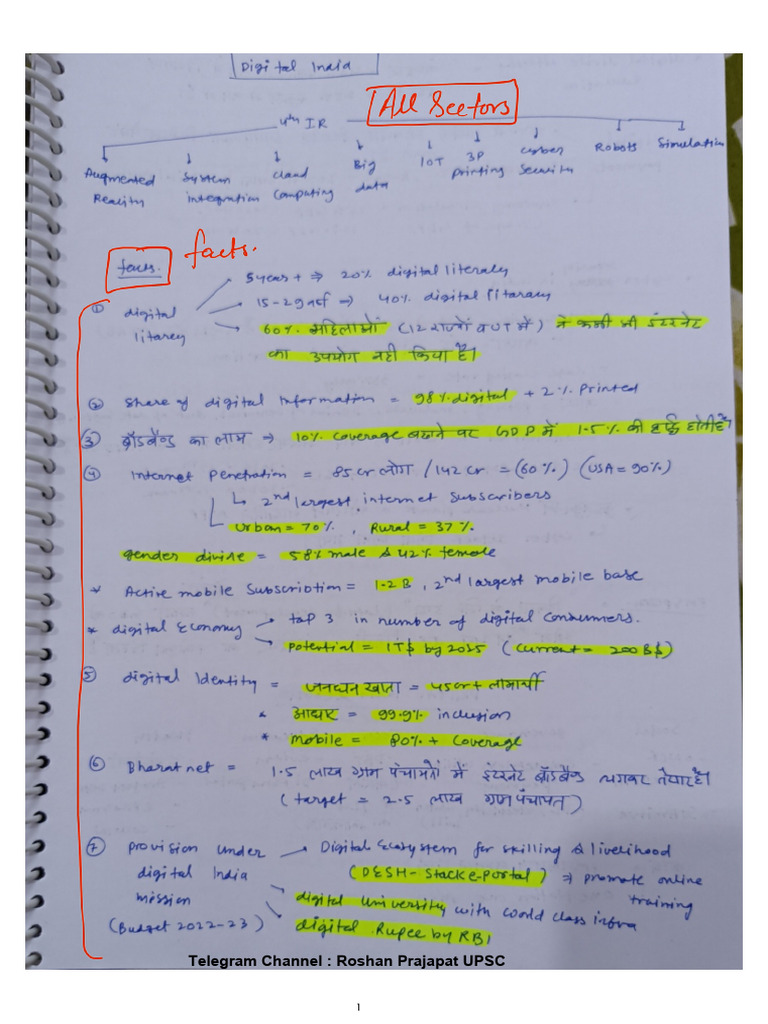 Digital India
All Sectors
4th IR
Augmented Reality
System integration
cloud computing
Big data
IOT
3P printing
cyber security
Robots
Simulation
facts. facts.
① digital litarcy
5year + ⇒ 20% digital literaly
15-29 → 40% digital litaraly
60% महिलाओं (12 राज्यों व UT में) ने कभी भी इंटरनेट
का उपयोग नही किया है।
② Share of digital Information = 98% digital + 2% Printed
③ ब्रॉडबैण्ड का लाभ ⇒ 10% coverage बढाने पर GDP में 1.5% की वृद्धि होती है
④ Internet Penetration = 85 cr लोग / 142 cr = (60%) (USA = 90%)
2nd largest internet subscribers
Urban = 70% , Rural = 37%.
gender divine = 58% male & 42% female
* Active mobile subscribtion = 1.2 B , 2nd largest mobile base
* digital Economy → top 3 in number of digital consumers.
Potential = 1T$ by 2025 (current = 200 B$)
⑤ digital Identity = जनधन खाता = 45cr+ लाभार्थी
* आधार = 99.9% inclusion
* mobile = 80% + coverage
⑥ Bharatnet = 1.5 लाख ग्राम पंचायतों में इंटरनेट ब्रॉडबैण्ड लगकर तैयार है।
(target = 2.5 लाख ग्राम पंचायत)
⑦ Provision under digital India mission (Budget 2022-23)
→ Digital Ecosystem for skilling & livelihood
(DESH-Stack e-Portal) ⇒ promote online training
digital University with world class infra
digital Rupee by RBI
Telegram Channel : Roshan Prajapat UPSC
1